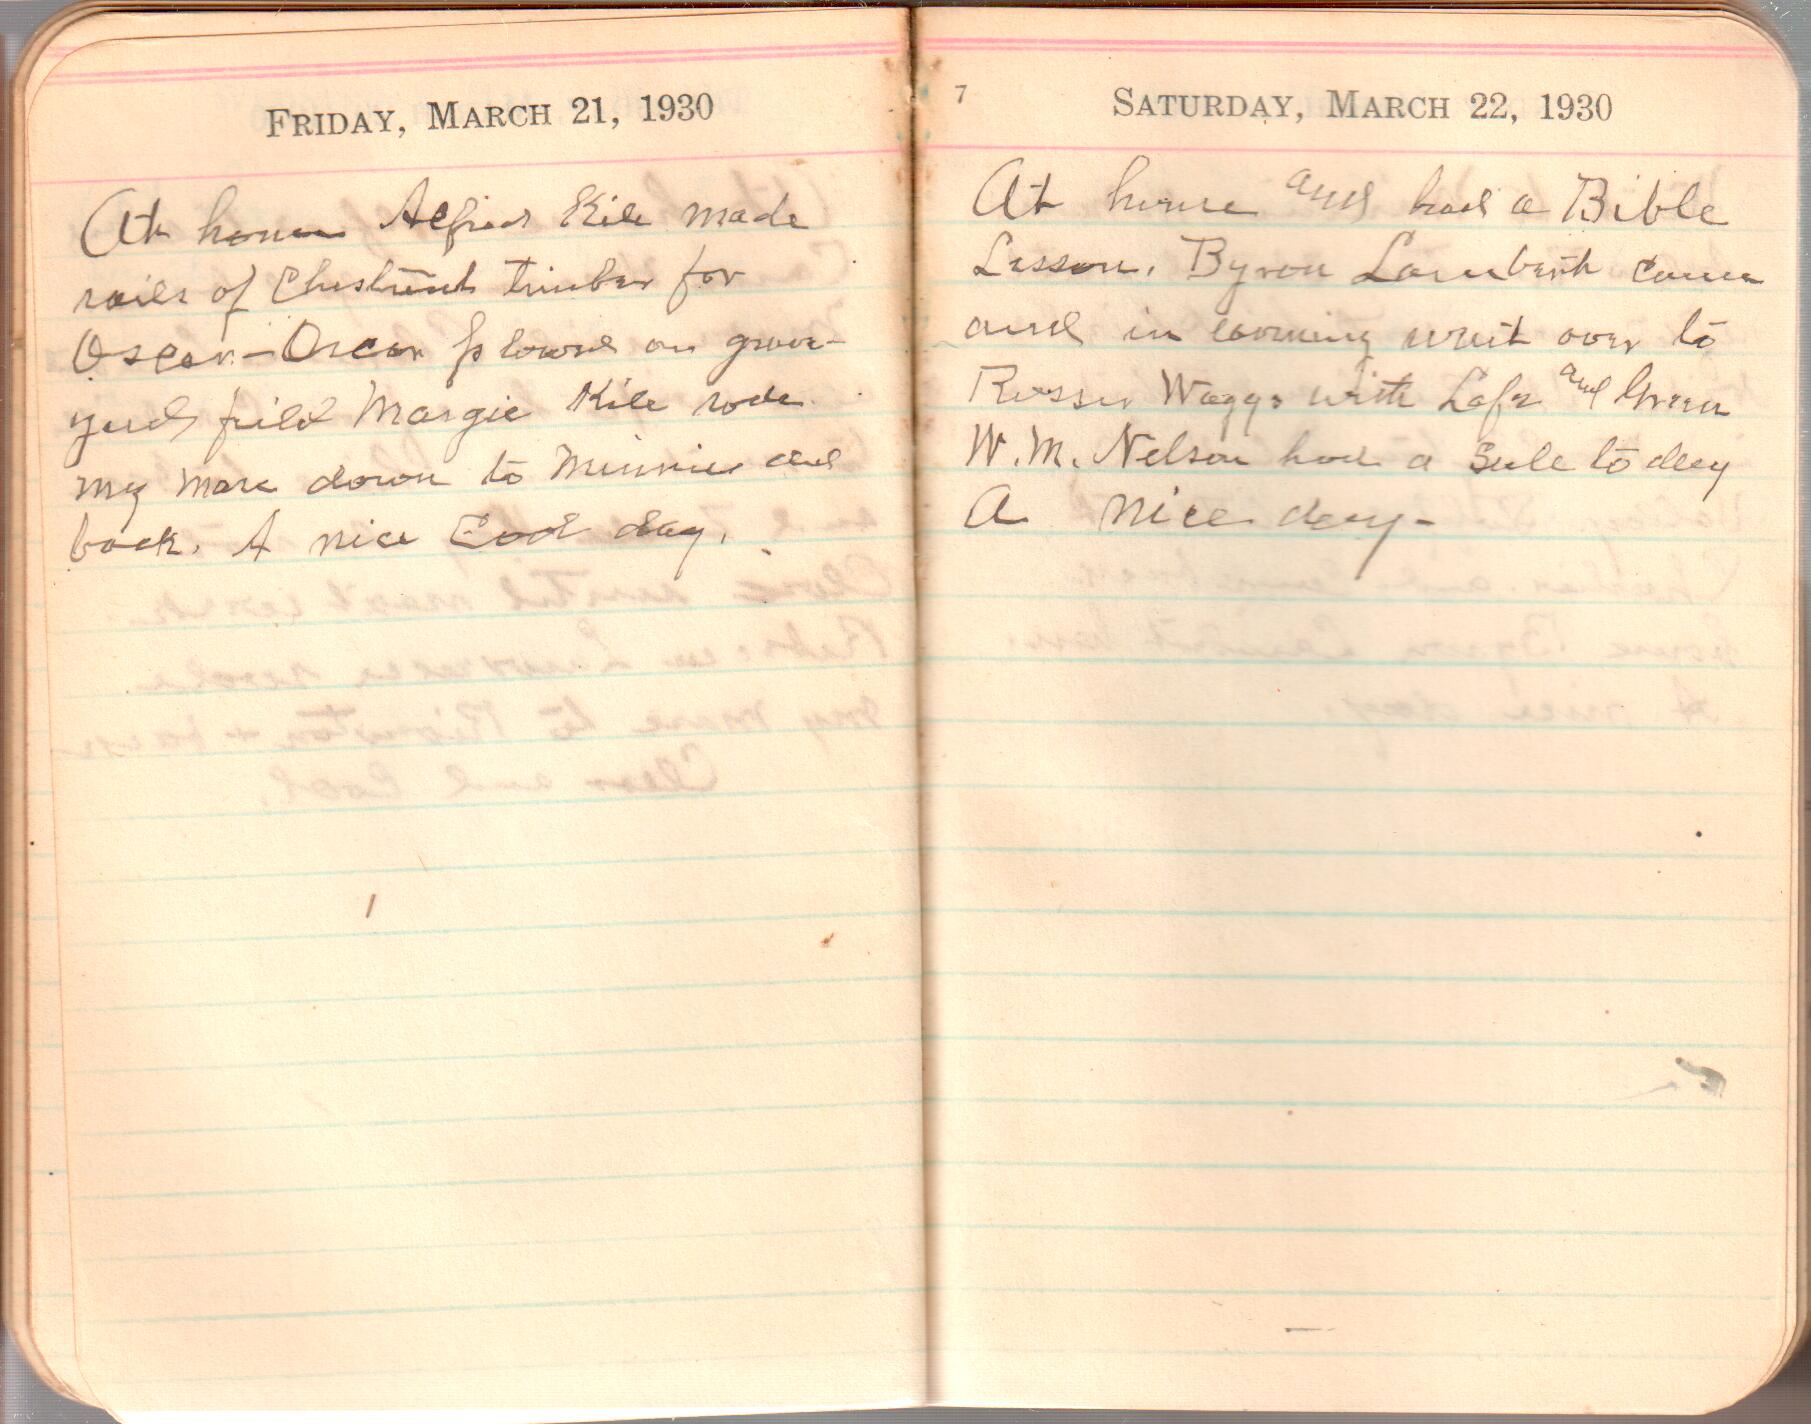 FRIDAY, MARCH 21, 1930
At home Alfred Kile made
rails of Chestnut timber for
Oscar - Oscar plowed on grave-
yard field Margie Kile rode
my mare down to Minnies and
back. A nice Cool day.
7
SATURDAY, MARCH 22, 1930
At home and had a Bible
Lesson. Byron Lambert came
and in evening went over to
Waggs with Lafe and Green
W. M. Nelson had a Sale to day
A nice day-